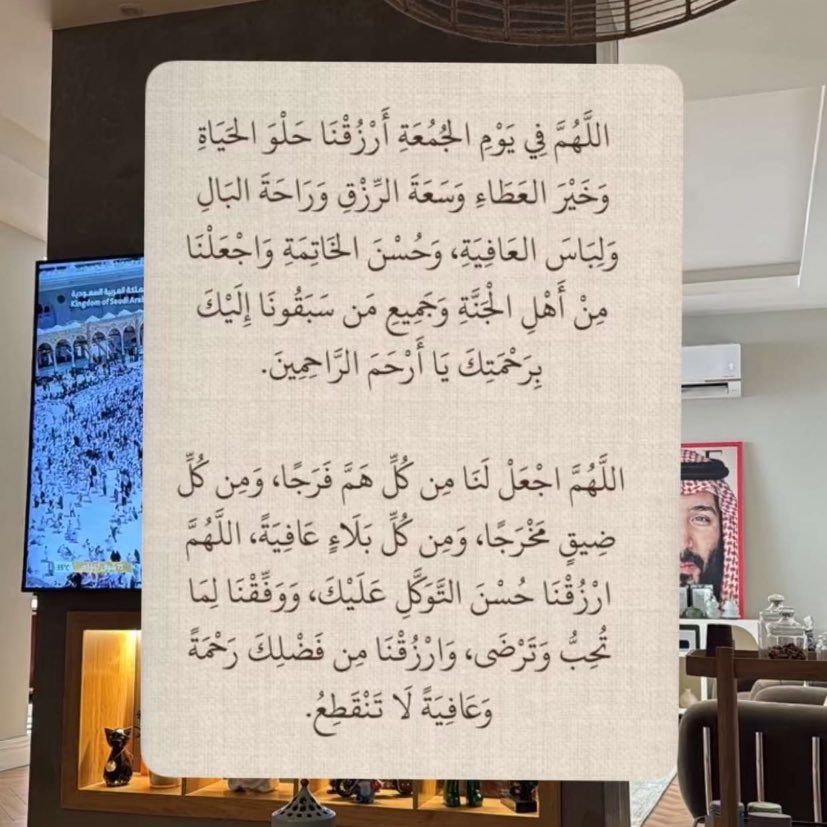 اللَّهُمَّ فِي يَوْمِ الجُمُعَةِ أَرْزُقْنَا حَلْوَ الحَيَاةِ
وَخَيْرَ العَطَاءِ وَسَعَةَ الرِّزْقِ وَرَاحَةَ البَالِ
وَلِبَاسَ العَافِيَةِ، وَحُسْنَ الخَاتِمَةِ وَاجْعَلْنَا
مِنْ أَهْلِ الْجَنَّةِ وَجَمِيعِ مَن سَبَقُونَا إِلَيْكَ
بِرَحْمَتِكَ يَا أَرْحَمَ الرَّاحِمِينَ.
اللَّهُمَّ اجْعَلْ لَنَا مِن كُلِّ هَمَّ فَرَجًا، وَمِن كُلِّ
ضِيقٍ مَخْرَجًا، وَمِن كُلِّ بَلَاءٍ عَافِيَةً، اللَّهُمَّ
ارْزُقْنَا حُسْنَ التَّوَكَّلِ عَلَيْكَ، وَوَفِّقْنَا لِمَا
تُحِبُّ وَتَرْضَى، وَارْزُقْنَا مِن فَضْلِكَ رَحْمَةً
وَعَافِيَةً لَا تَنْقَطِعُ.
المملكة العربية السعودية
Kingdom of Saudi Arab